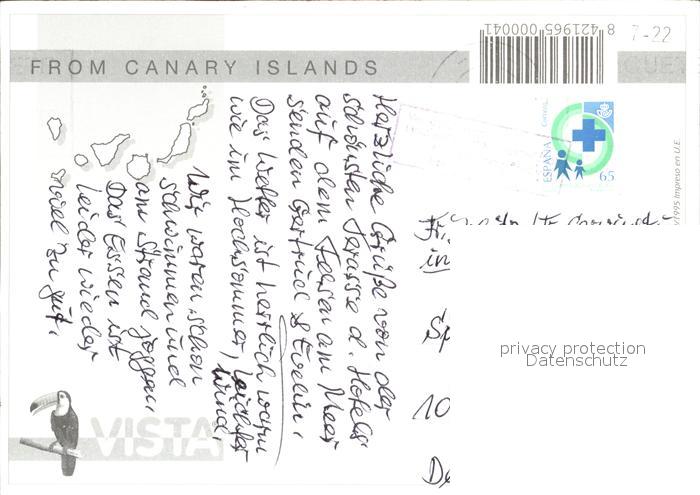 FROM CANARY ISLANDS
8 421965 000041
7-22
ESPAÑA
Correos
65
1995 Impreso en U.E.
Herzliche Grüße von der
schönsten Terasse d. Hotels
auf dem Felsen am Meer
senden Gertrud & Evelin.
Das Wetter ist herrlich warm
wie im Hochsommer, leichter
Wind.
Wir waren schon
schwimmen und
am Strand joggen.
Das Essen ist
leider wieder
viel zu gut.
in
10
privacy protection
Datenschutz
VISTA